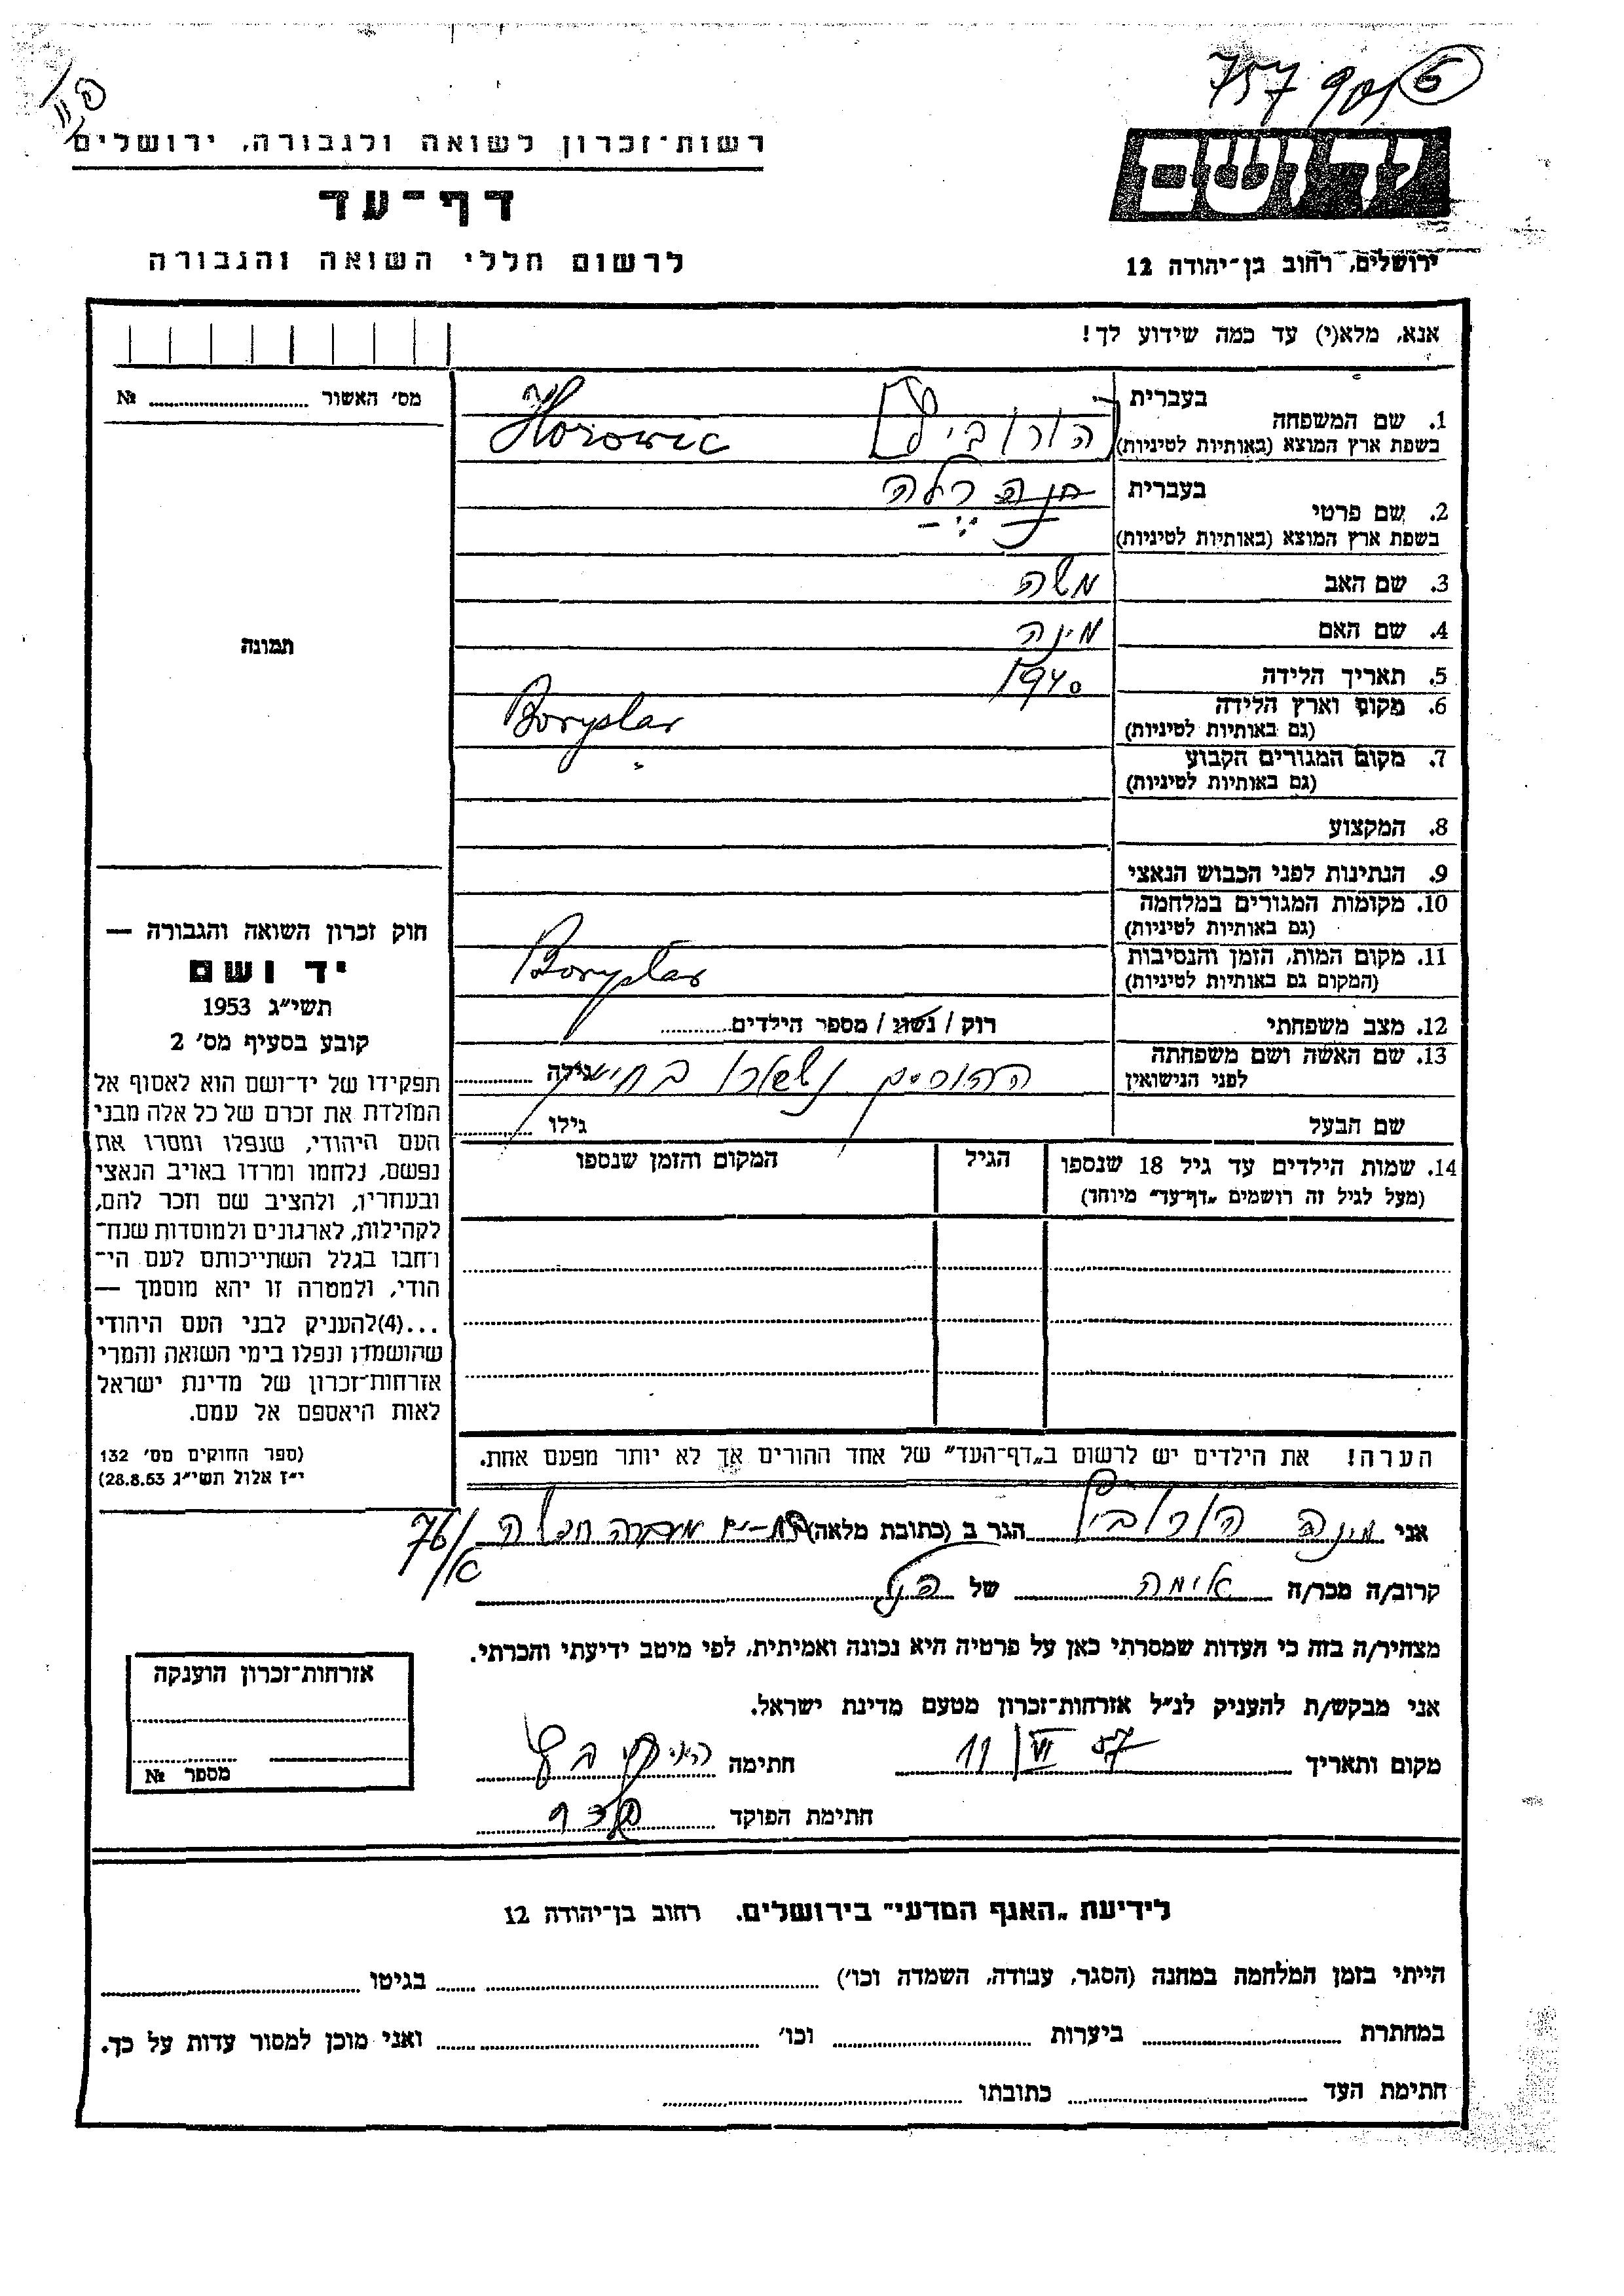 757
רשות־זכרון לשואה ולגבורה, ירושלים
דף־עד
לרשום חללי השואה והגבורה
יד ושם
ירושלים, רחוב בן־יהודה 12
אנא, מלא(י) עד כמה שידוע לך!
מס' האשור № 
תמונה
1. שם המשפחה
בעברית
הורוביץ
בשפת ארץ המוצא (באותיות לטיניות)
Horowic
2. שם פרטי
בעברית
חנה רלה
בשפת ארץ המוצא (באותיות לטיניות)
3. שם האב משה
4. שם האם מינה
5. תאריך הלידה 1940
6. מקום וארץ הלידה
(גם באותיות לטיניות)
Boryslav
7. מקום המגורים הקבוע
(גם באותיות לטיניות)
8. המקצוע
9. הנתינות לפני הכבוש הנאצי
10. מקומות המגורים במלחמה
(גם באותיות לטיניות)
11. מקום המות, הזמן והנסיבות
(המקום גם באותיות לטיניות)
Boryslav
12. מצב משפחתי רוק / נשוי / מספר הילדים
13. שם האשה ושם משפחתה
לפני הנישואין
גילה
ההורים נשארו בחיים
שם הבעל גילו
14. שמות הילדים עד גיל 18 שנספו
(מעל לגיל זה רושמים „דף־עד" מיוחד)
הגיל
המקום והזמן שנספו
חוק זכרון השואה והגבורה —
יד ושם
תשי"ג 1953
קובע בסעיף מס' 2
תפקידו של יד־ושם הוא לאסוף אל
המולדת את זכרם של כל אלה מבני
העם היהודי, שנפלו ומסרו את
נפשם, נלחמו ומרדו באויב הנאצי
ובעוזריו, ולהציב שם וזכר להם,
לקהילות, לארגונים ולמוסדות שנח־
רבו בגלל השתייכותם לעם הי־
הודי, ולמטרה זו יהא מוסמך —
...(4)להעניק לבני העם היהודי
שהושמדו ונפלו בימי השואה והמרי
אזרחות־זכרון של מדינת ישראל
לאות היאספם אל עמם.
(ספר החוקים מס' 132
י"ז אלול תשי"ג 28.8.53)
הערה! את הילדים יש לרשום ב„דף־העד" של אחד ההורים אך לא יותר מפעם אחת.
אני מינה הורוביץ הגר ב (כתובת מלאה)
76/א
קרוב/ה מכר/ה אימה של הנ"ל
מצהיר/ה בזה כי העדות שמסרתי כאן על פרטיה היא נכונה ואמיתית, לפי מיטב ידיעתי והכרתי.
אני מבקש/ת להעניק לנ"ל אזרחות־זכרון מטעם מדינת ישראל.
מקום ותאריך 11/VI 57 חתימה
חתימת הפוקד
אזרחות־זכרון הוענקה
מספר №
לידיעת „האגף המדעי" בירושלים. רחוב בן־יהודה 12
הייתי בזמן המלחמה במחנה (הסגר, עבודה, השמדה וכו') בגיטו
במחתרת ביערות וכו' ואני מוכן למסור עדות על כך.
חתימת העד כתובתו